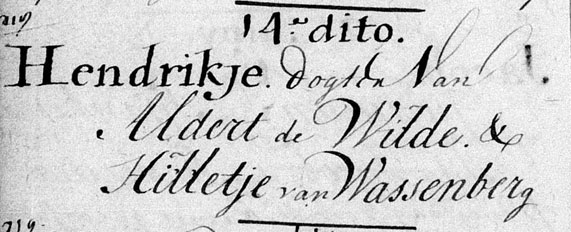 14.e dito.
Hendrikje. Dogter Van
Aldert de Wilde. &
Hilletje van Wassenberg
219.